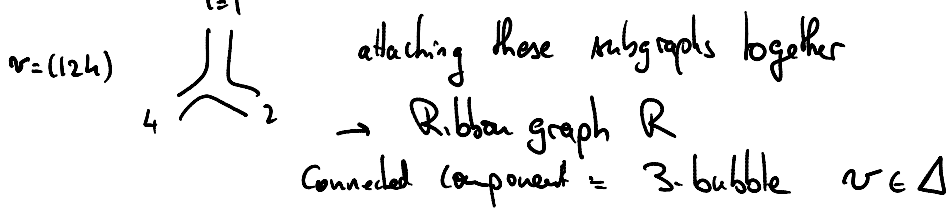 attaching these subgraphs together
v=(124)
4
2
→ Ribbon graph R
Connected component = 3-bubble v ∈ Δ